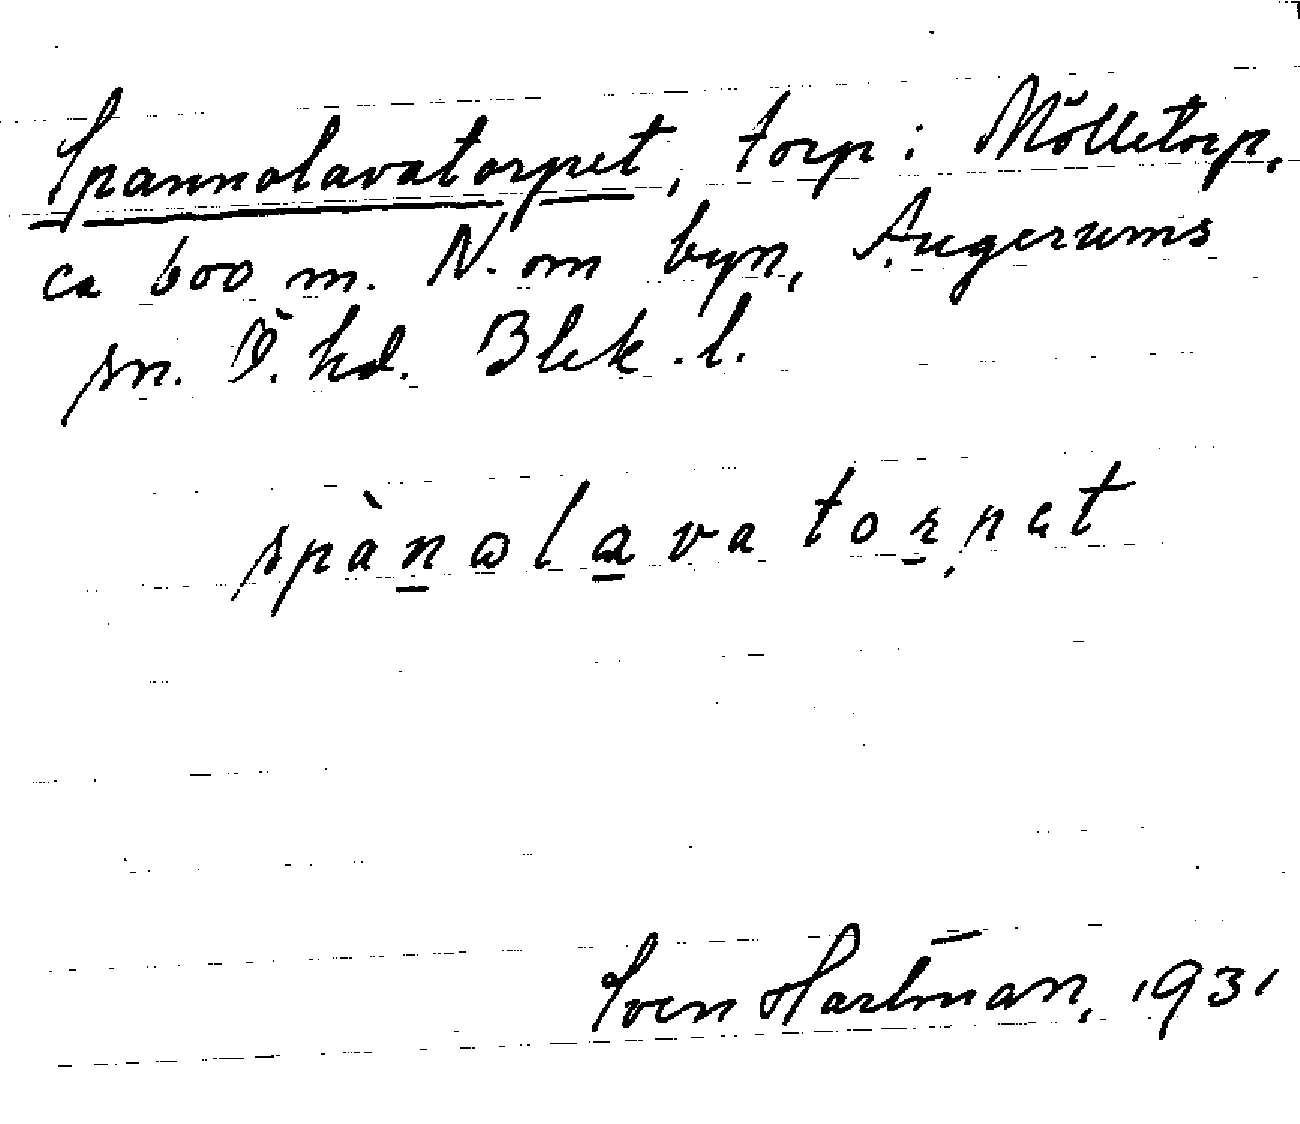 Spannolavatorpet, torp i Mölletorp,
ca 600 m. N. om byn, Augerums
sn. Ö. hd. Blek. l.
spànolavatorpet
Sven Hartman, 1931